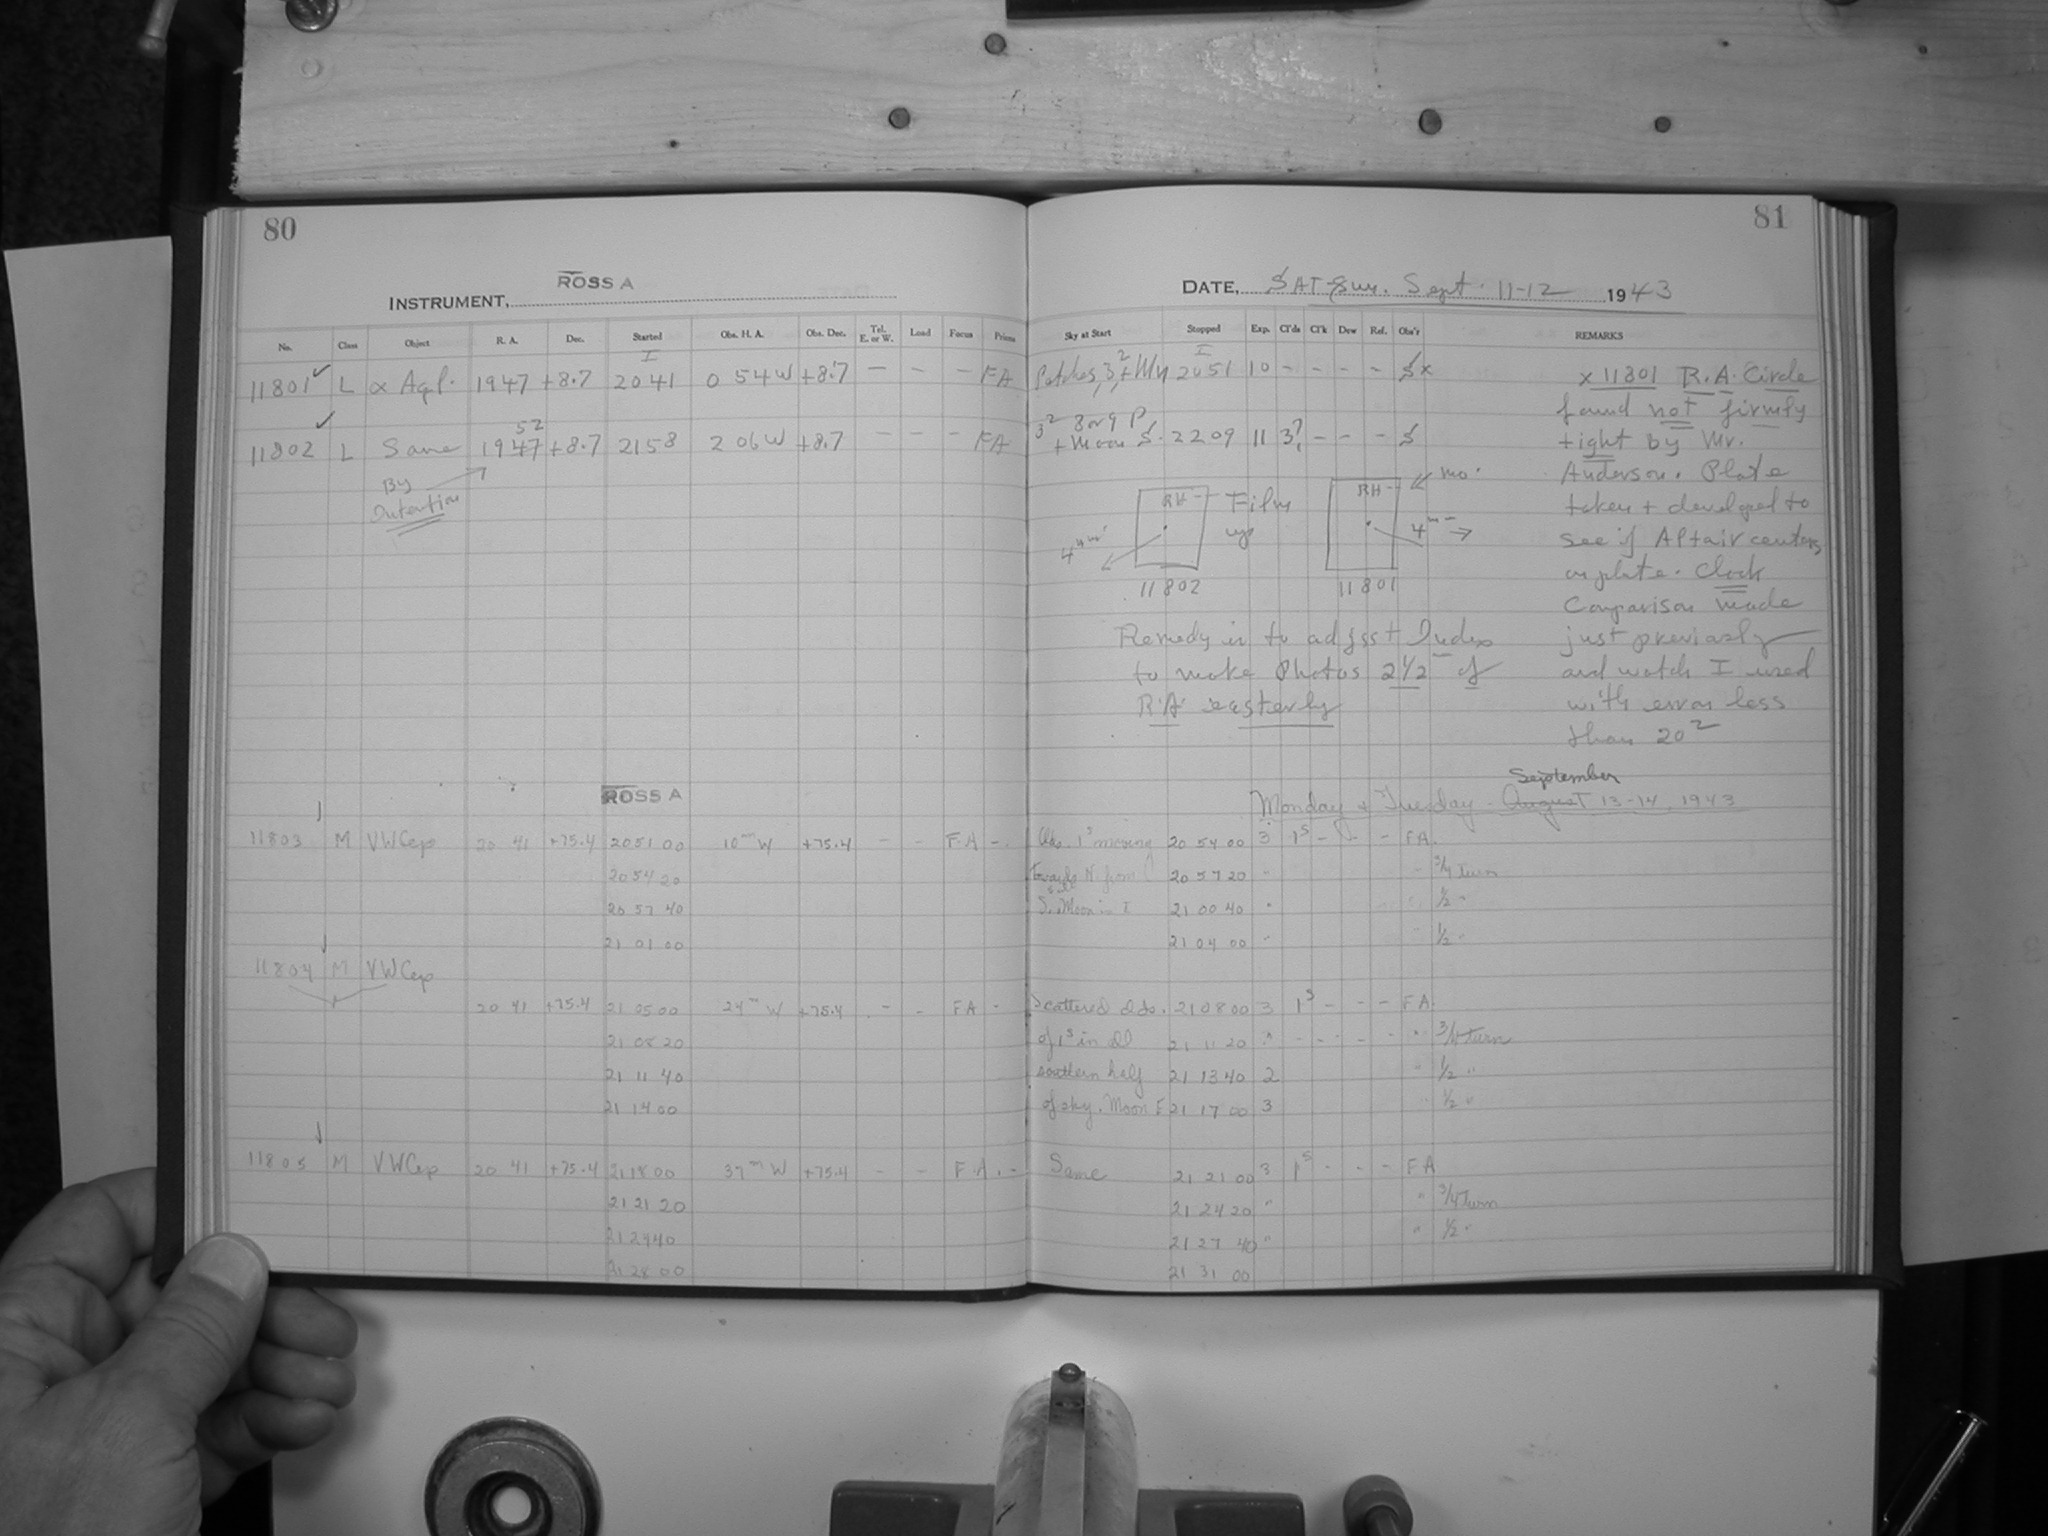 80
ROSS A
INSTRUMENT,
No. Class Object R. A. Dec. Started Obs. H. A. Obs. Dec. Tel. E. or W. Load Focus Prisms
I
11801 ✓ L α Aql. 1947 +8.7 2041 0 54 W +8.7 — — — FA
52
11802 ✓ L Same 1947 +8.7 2158 2 06 W +8.7 — — — FA
By
Intention
ROSS A
11803 M VW Cep 20 41 +75.4 20 51 00 10ᵐ W +75.4 – – F.A –
20 54 20
20 57 40
21 01 00
11804 M VW Cep
20 41 +75.4 21 05 00 24ᵐ W +75.4 – – FA –
21 08 20
21 11 40
21 14 00
11805 M VW Cep 20 41 +75.4 21 18 00 37ᵐ W +75.4 – – F.A. –
21 21 20
21 24 40
21 28 00
81
DATE, SAT-Sun. Sept. 11-12 1943
Sky at Start Stopped Exp. Cl'ds Cl'k Dew Ref. Obs'r REMARKS
I
Patches 2051 10 – – – – S x
+ Moon S. 2209 11 3? – – – S
RH Film up
4ᵐᵐ
11802
RH mo.
4ᵐᵐ
11801
Remedy is to adjust Index
to make Photos 2 1/2 of
R.A. easterly
x 11801 R.A. Circle
found not firmly
tight by Mr.
Anderson. Plate
taken + developed to
see if Altair centers
on plate. Clock
Comparison made
just previously
and watch I used
with error less
than 20
September
Monday & Tuesday - August 13-14, 1943
Clds. 1ˢ moving 20 54 00 3 1ˢ – – – FA.
towards N from 20 57 20 " " 3/4 turn
S. Moon in I 21 00 40 " 1/2 "
21 04 00 " " 1/2 "
Scattered clds. 21 08 00 3 1ˢ – – – FA.
of 1ˢ in all 21 11 20 " – – – – " 3/4 turn
southern half 21 13 40 2 " 1/2 "
of sky. Moon E 21 17 00 3 " 1/2 "
Same 21 21 00 3 1ˢ – – – FA
21 24 20 " " 3/4 turn
21 27 40 " " 1/2 "
21 31 00